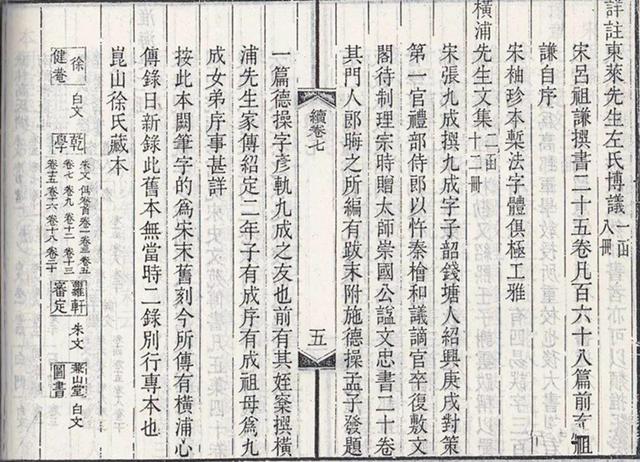 詳註東萊先生左氏博議 一函八冊
宋呂祖謙撰書二十五卷凡百六十八篇前有祖
謙自序
宋袖珍本槧法字體俱極工雅
橫浦先生文集 二函十二冊
宋張九成撰九成字子韶錢塘人紹興庚戌對策
第一官禮部侍郎以忤秦檜和議謫官卒復敷文
閣待制理宗時贈太師崇國公諡文忠書二十卷
其門人郎晦之所編有跋末附施德操孟子發題
續卷七
五
一篇德操字彥軌九成之友也前有其姪案撰橫
浦先生家傳紹定二年子有成序有成祖母爲九
成女弟序事甚詳
按此本闕筆字的爲宋末舊刻今所傳有橫浦心
傳錄日新錄此舊本無當時二錄別行專本也
崑山徐氏藏本
徐健菴 白文 乾學 朱文 俱卷首卷一卷三卷五卷七卷九卷十二卷十三卷十五卷十六卷十八卷二十 蘿軒審定 朱文 兼山堂圖書 白文